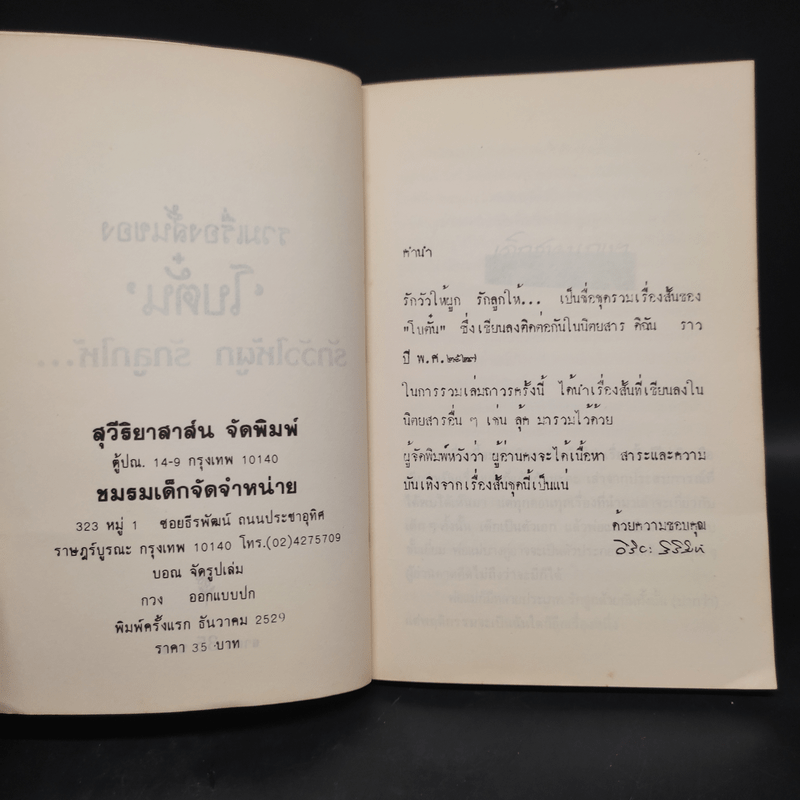 สุวีริยาสาส์น จัดพิมพ์
ตู้ปณ. 14-9 กรุงเทพ 10140
ชมรมเด็กจัดจำหน่าย
323 หมู่ 1 ซอยธีรพัฒน์ ถนนประชาอุทิศ
ราษฎร์บูรณะ กรุงเทพ 10140 โทร.(02)4275709
บอณ จัดรูปเล่ม
กวง ออกแบบปก
พิมพ์ครั้งแรก ธันวาคม 2529
ราคา 35 บาท
คำนำ
รักวัวให้ผูก รักลูกให้... เป็นชื่อชุดรวมเรื่องสั้นของ
"โบตั๋น" ซึ่งเขียนลงติดต่อกันในนิตยสาร ดิฉัน ราว
ปี พ.ศ.๒๕๒๗
ในการรวมเล่มถาวรครั้งนี้ ได้นำเรื่องสั้นที่เขียนลงใน
นิตยสารอื่น ๆ เช่น ลุ้ค มารวมไว้ด้วย
ผู้จัดพิมพ์หวังว่า ผู้อ่านคงจะได้เนื้อหา สาระและความ
บันเทิงจากเรื่องสั้นชุดนี้เป็นแน่
ด้วยความขอบคุณ